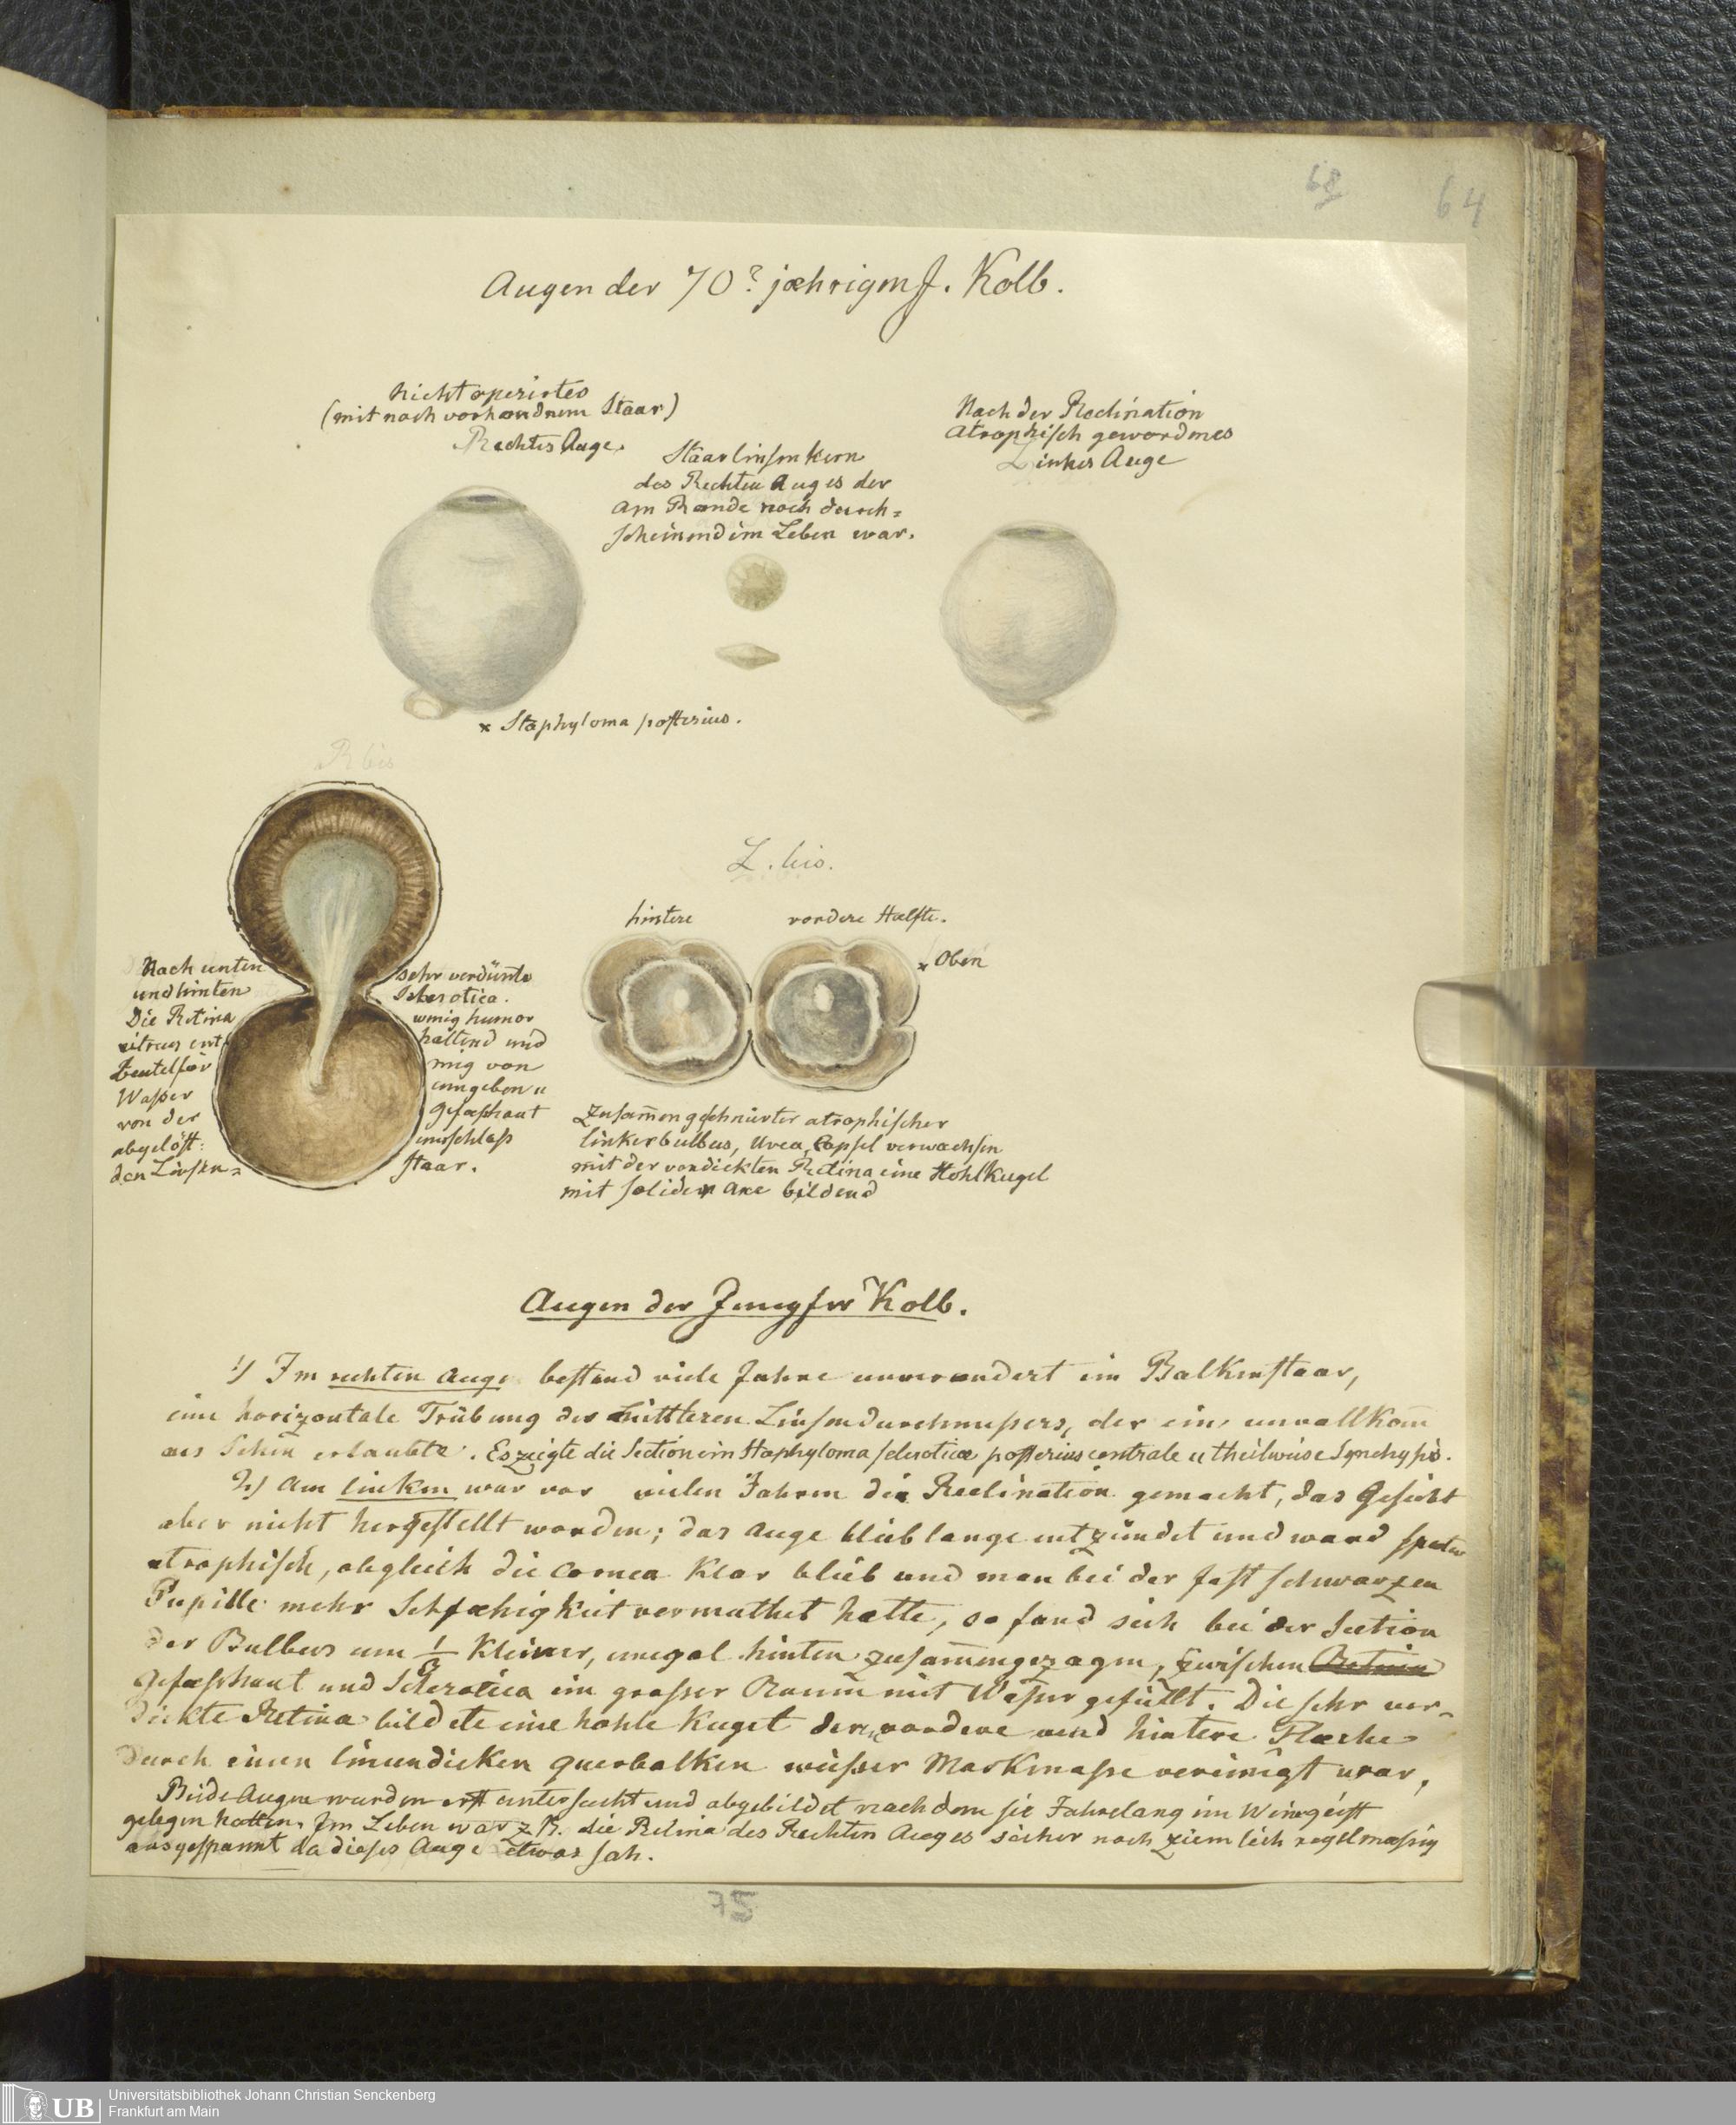 68
64
Augen der 70? jæhrigen J. Kolb.
Nicht operirtes
(mit noch vorhandnem Staar)
Rechtes Auge.
Staarlinsenkern
des Rechten Auges der
am Rande noch durch=
scheinend im Leben war.
Nach der Reclination
atrophisch gewordenes
Linkes Auge
x Staphyloma posterius.
R bis
L. bis.
hintere vordere Hælfte.
x Oben
Nach unten sehr verdünte
und hinten Sclerotica.
Die Retina wenig humor
vitreus ent haltend und
beutelför mig von
Waßer umgeben u
von der Gefæshaut
abgelöst: umschloss
den Linsen= staar.
Zusam̅engeschnürter atrophischer
linker bulbus, Uvea, Capsel verwachsen
mit der verdickten Retina eine Hohlkugel
mit solider Axe bildend
Augen der Jungfer Kolb.
1) Im rechten Auge bestand viele Jahre unverændert ein Balkenstaar,
eine horizontale Trübung des mittleren Linsendurchmeßers, der ein unvollkom̅
nes Sehen erlaubte. Es zeigte die Section ein Staphyloma scleroticæ posterius centrale u theilweise Synchysis.
2) Am linken war vor vielen Jahren die Reclination gemacht, das Gesicht
aber nicht hergestellt worden; das Auge blieb lange entzündet und ward spæter
atrophisch, obgleich die Cornea klar blieb und man bei der fast schwarzen
Pupille mehr Sehfæhigkeit vermuthet hætte, so fand sich bei der Section
der Bulbus um 1/3 kleiner, unegal hinten zusam̅engezogen, zwischen Retina
Gefæshaut und Sclerotica ein grosser Raum mit Waßer gefüllt. Die sehr ver-
dickte Retina bildete eine hohle Kugel deren vordere und hintere Flæche
durch einen liniendicken Querbalken weißer Markmaße vereinigt war,
Beide Augen wurden erst untersucht und abgebildet nachdem sie Jahrelang im Weingeist
gelegen hatten. Im Leben war z. B. die Retina des Rechten Auges sicher noch ziemlich regelmæsig
ausgespannt da dieses Auge etwas sah.
75
UB
Universitätsbibliothek Johann Christian Senckenberg
Frankfurt am Main